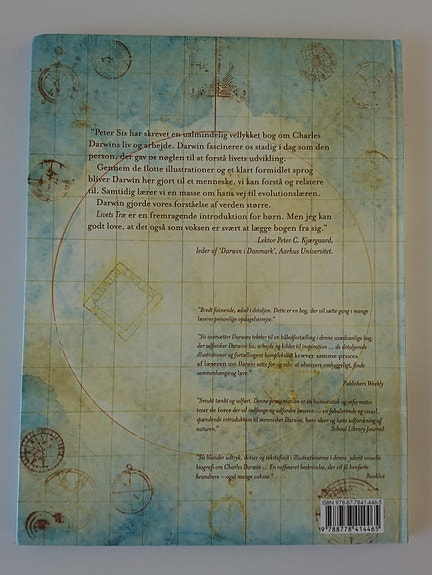 "Peter Sis har skrevet en ualmindelig vellykket bog om Charles
Darwins liv og arbejde. Darwin fascinerer os stadig i dag som den
person, der gav os nøglen til at forstå livets udvikling.
Gennem de flotte illustrationer og et klart formidlet sprog
bliver Darwin her gjort til et menneske, vi kan forstå og relatere
til. Samtidig lærer vi en masse om hans vej til evolutionslæren.
Darwin gjorde vores forståelse af verden større.
Livets Træ er en fremragende introduktion for børn. Men jeg kan
godt love, at det også som voksen er svært at lægge bogen fra sig."
Lektor Peter C. Kjærgaard,
leder af 'Darwin i Danmark', Aarhus Universitet.
"Bredt favnende, ødsel i detaljen. Dette er en bog, der vil sætte gang i mange
læseres personlige opdagelsesrejse."
"Sís oversætter Darwins tekster til en billedfortælling i denne usædvanlige bog,
der udforsker Darwins liv, arbejde og kilder til inspiration ... de detaljerede
illustrationer og fortællingens kompleksitet kræver samme proces
af læseren som Darwin satte for sig selv: at observere omhyggeligt, finde
sammenhænge og lære."
Publishers Weekly
"Smukt tænkt og udført. Denne præsentation er en humoristisk og informativ
tour de force der vil indfange og udfordre læseren ... en fabulerende og visuel,
spændende introduktion til mennesket Darwin, hans ideer og hans udforskning af
naturen."
School Library Journal
"Sís blander udtryk, skitser og tekstafsnit i illustrationerne i denne yderst visuelle
biografi om Charles Darwin ... En raffineret beskrivelse, der vil få henførte
beundrere – også mange voksne."
Booklist
ISBN 978-87-7841-446-5
9 788778 414465